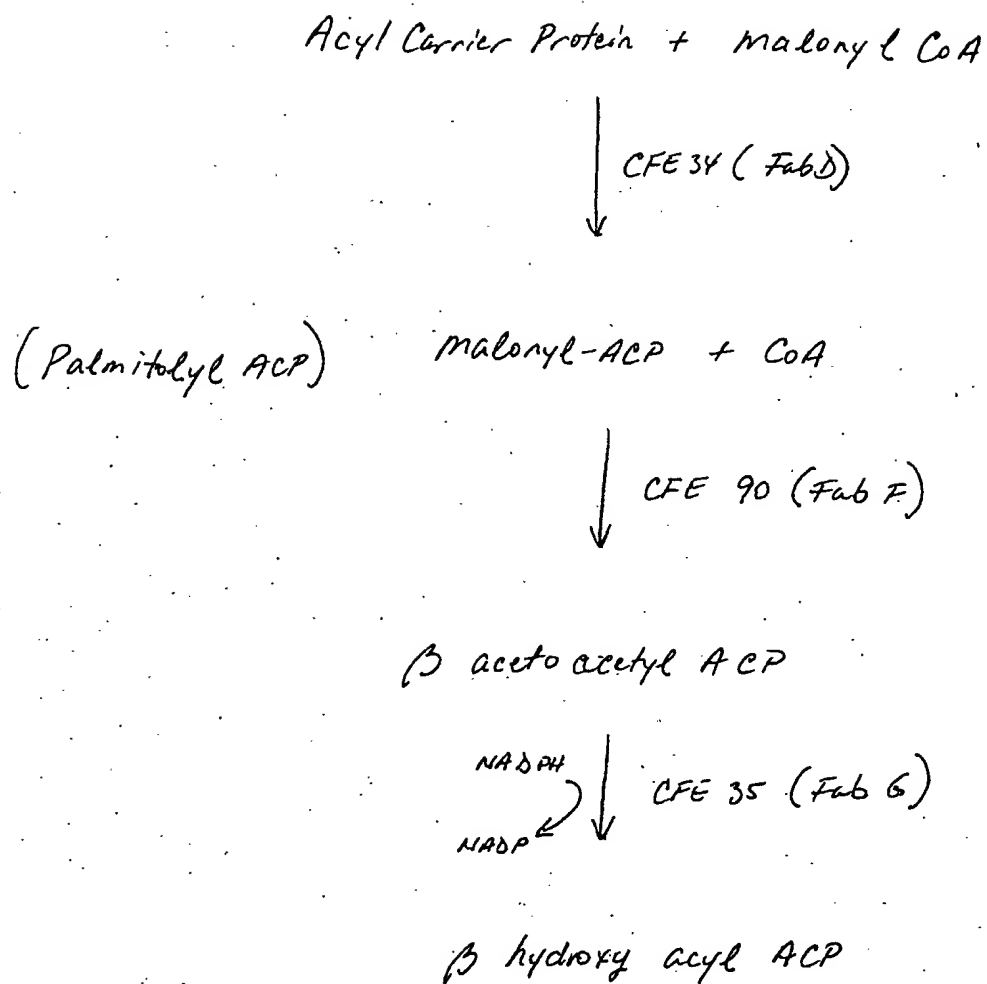 Acyl Carrier Protein + malonyl CoA
CFE 34 (FabD)
(Palmitolyl ACP) malonyl-ACP + CoA
CFE 90 (Fab F)
β aceto acetyl ACP
NADPH
CFE 35 (Fab G)
NADP
β hydroxy acyl ACP